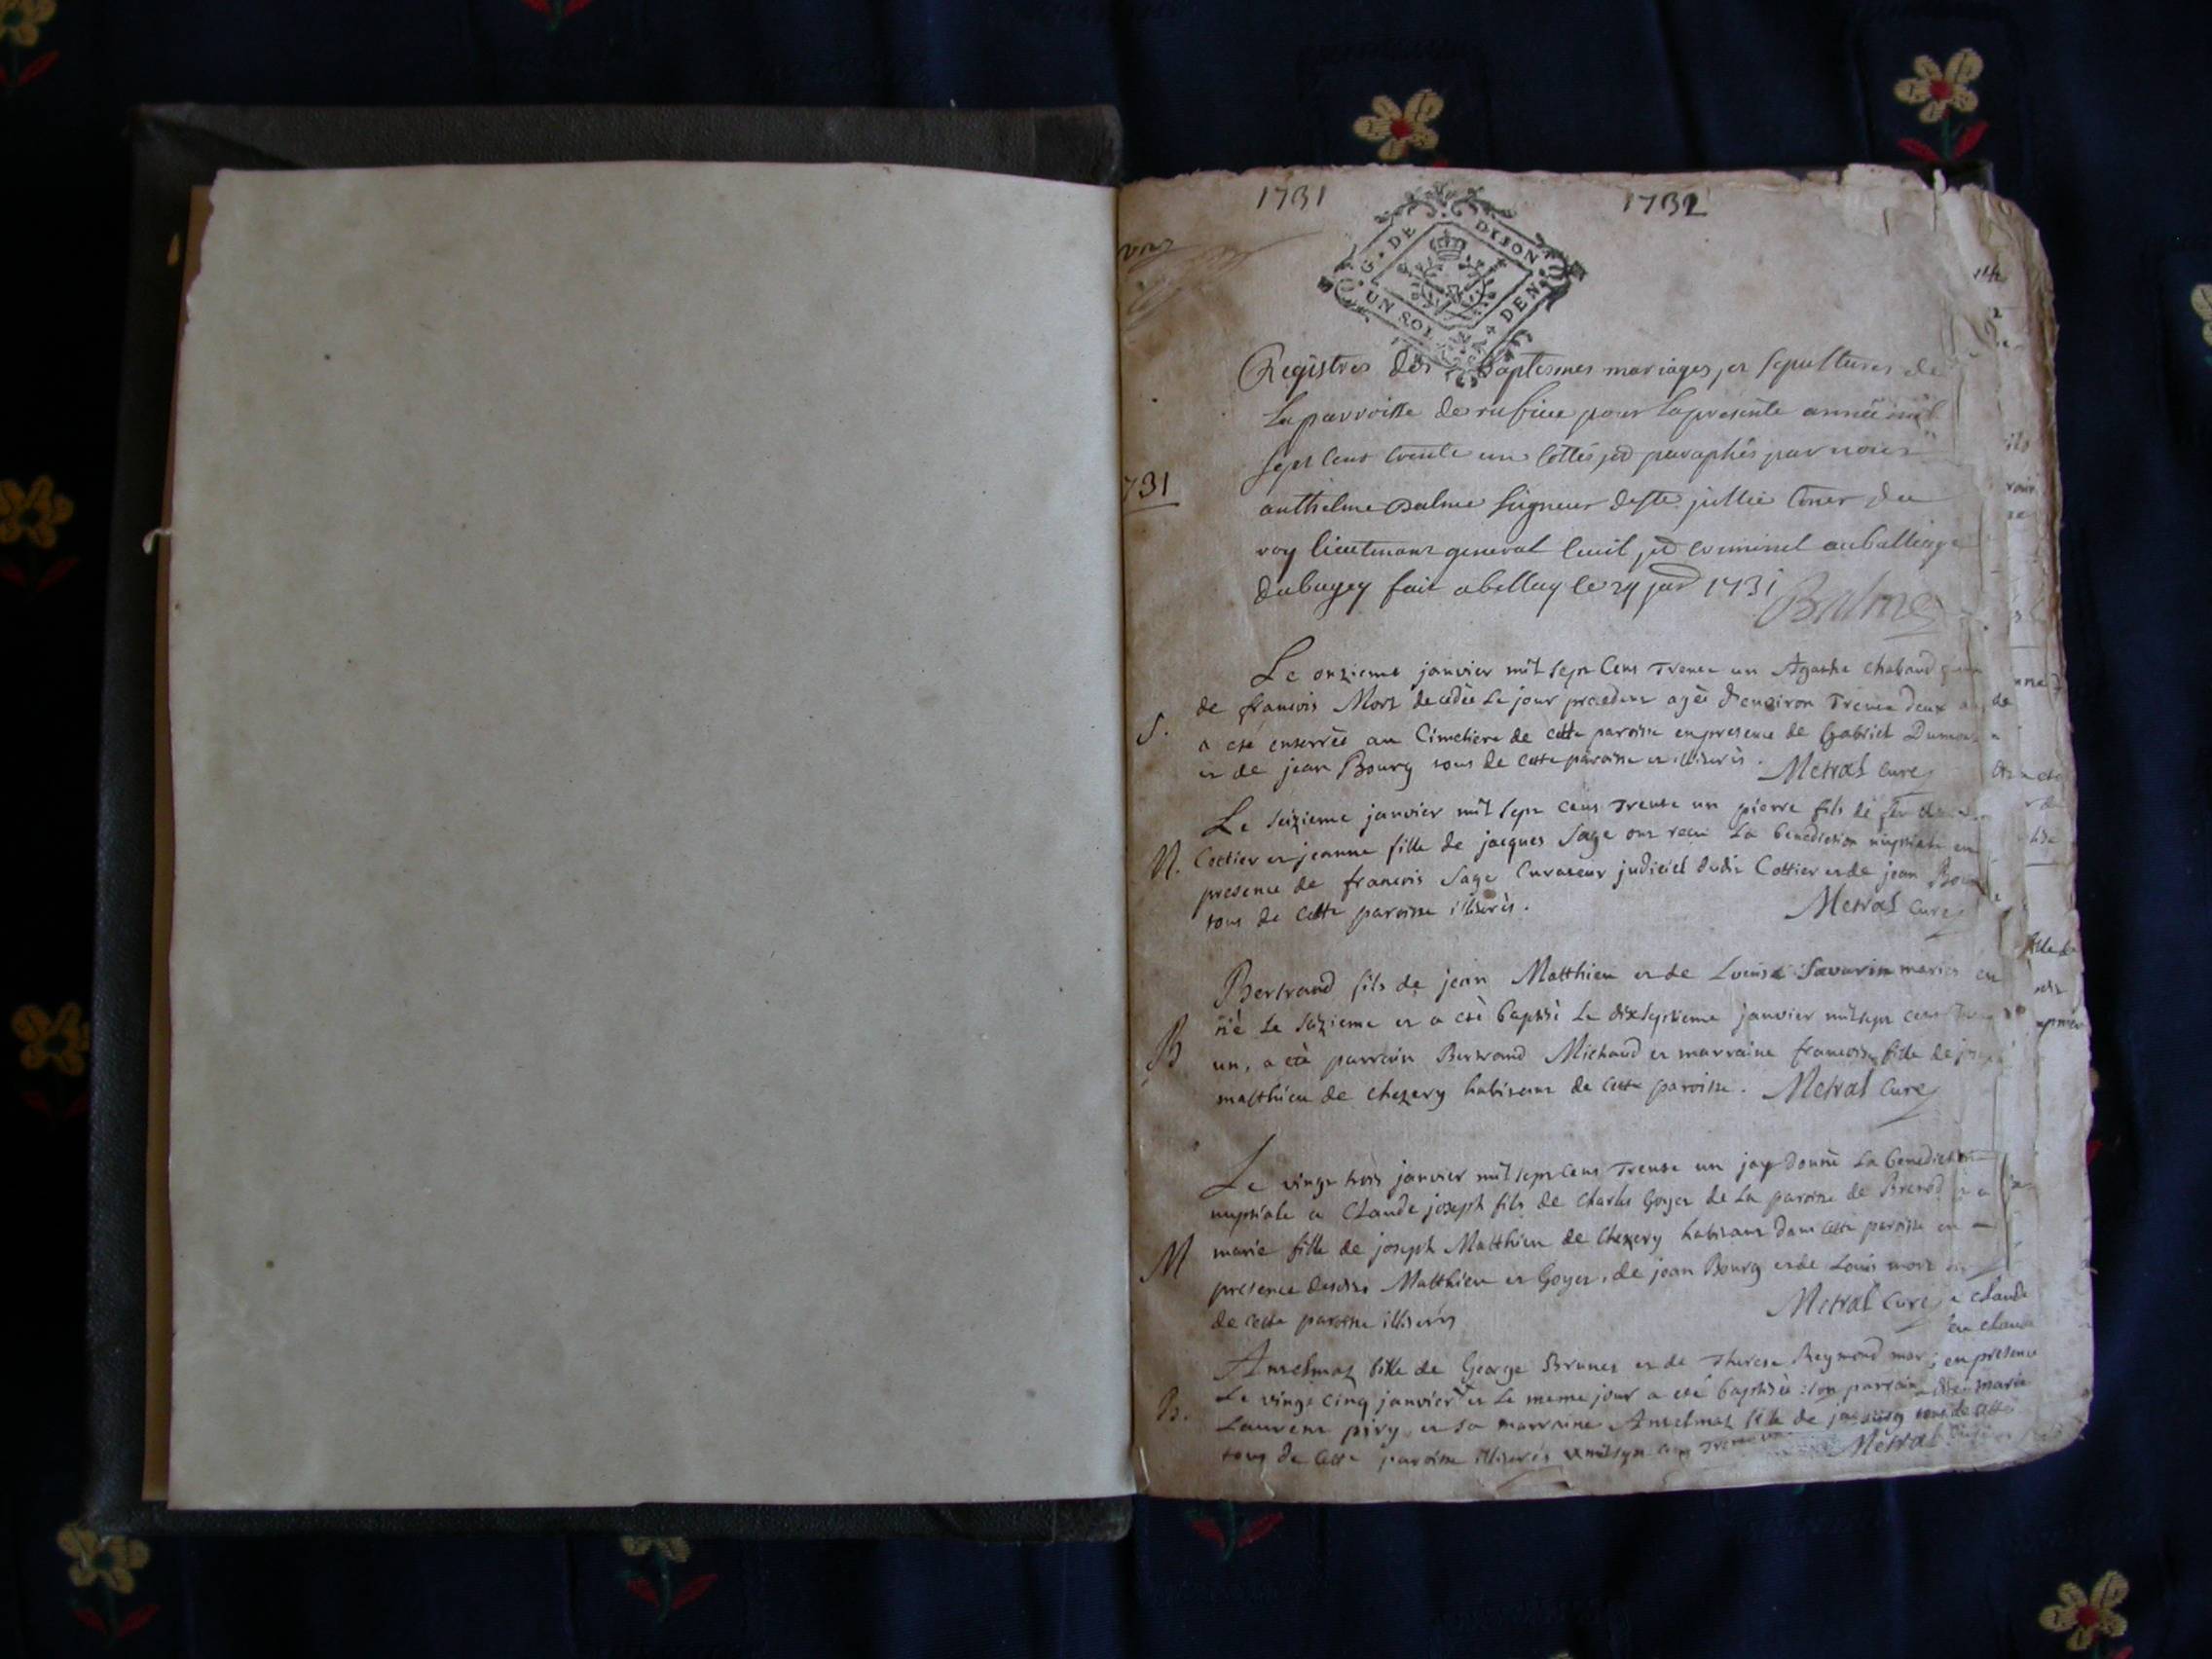 1731
1732
G. DE DIJON
UN SOL 4 DEN
Registres des Baptesmes mariages, et sepultures de
La parroisse de pour La presente année mil
sept cent trente un Cottés et paraphés par nous
anthelme Balme seigneur de Ste jullie Coner du
roy lieutenant general Civil et criminel au balliage
du bugey fait a bellay le 24 jer 1731
Balme
731
Le onzieme janvier mil sept Cens Trente un Agathe Chabaud
de francois Mort decedée Le jour precedent agée d'environ Trente deux
S.
a esté enterrée au Cimetiere de cette paroisse en presence de Gabriel Dumont
et de jean Bourg tous de cette paroisse et illiterés. Metral Curé
Le seizieme janvier mil sept cens Trente un pierre fils de feu
M. Cottier et jeanne fille de jacques Sage ont receu La benediction nuptiale en
presence de francois Sage Curateur judiciel dudit Cottier et de jean Bourg
tous de Cette paroisse illiterés. Metral Curé
Bertrand fils de jean Matthieu et de Louise Savarin mariés est
né Le seizieme et a esté baptisé Le dixseptieme janvier mil sept cens
B
un, a eté parrain Bertrand Michaud et marraine francoise fille de
matthieu de Chezery habitant de Cette paroisse. Metral Curé
Le vingt trois janvier mil sept Cens Trente un jay donné La benediction
nuptiale a Claude joseph fils de Charles Goyet de La paroisse de Brenod et a
M marie fille de joseph Matthieu de Chezery habitant dans Cette paroisse en
presence desdits Matthieu et Goyet, de jean Bourg et de Louis mort
de cette paroisse illiterés Metral Curé
Anselmaz fille de George Brunet et de Therese Reymond
Le vingt cinq janvier et Le meme jour a eté baptisée: son parrain
B.
Laurent et sa marraine Anselmaz fille de
tous de Cette paroisse illiterés mil sept cens Trente un Metral